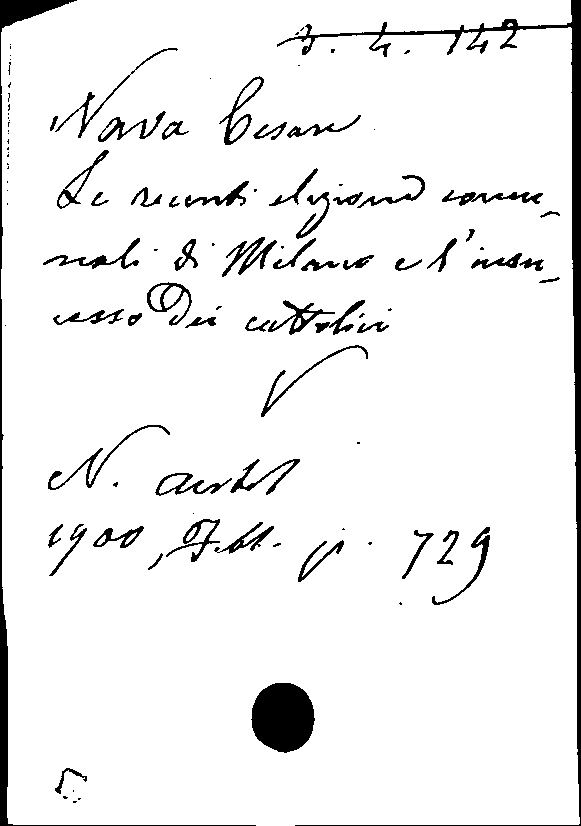 3. 4. 142
Nava Cesare
Le recenti elezioni comu-
nali di Milano e l'insu-
cesso dei cattolici
N.
1900, Febb. p. 729